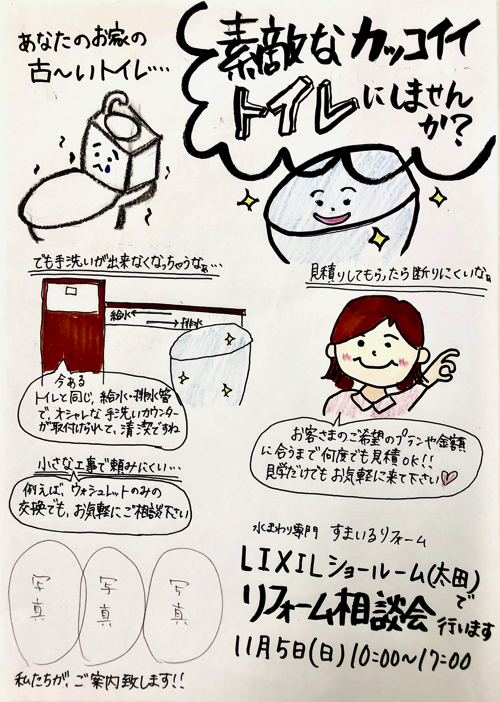 あなたのお家の
古〜いトイレ…
素敵なカッコイイ
トイレにしません
か?
でも手洗いが出来なくなっちゃうなぁ…
給水
排水
今ある
トイレと同じ、給水・排水管
で、オシャレな手洗いカウンター
が取付けられて、清潔ですね
見積りしてもらったら断りにくいなぁ
お客さまのご希望のプランや金額
に合うまで何度でも見積OK!!
見学だけでもお気軽に来て下さい♡
小さな工事で頼みにくい…
例えば、ウォシュレットのみの
交換でも、お気軽にご相談下さい
写真
写真
写真
私たちが、ご案内致します!!
水まわり専門 すまいるリフォーム
LIXILショールーム(太田)で
リフォーム相談会行います
11月5日(日)10:00〜17:00